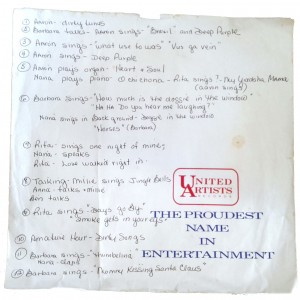 ① Aaron- dirty tunes
② Barbara talks- Aaron sings- "Brazil" and Deep Purple
③ Aaron sings- "What use to was"
④ Aaron sings- Deep Purple
⑤ Aaron plays organ- Heart + Soul
Nana plays piano
- Rita sings?
(Aaron sings)
⑥ Barbara Sings- "How much is the doggie in the window"
"He He Do you hear me laughing"
Nana sings in Back ground- Doggie in the window
"Horses" (Barbara)
⑦ Rita- sings one night of mine;
Nana- speaks
Rita- Love walked right in.
⑧ Talking- Millie sings Jingle Bells
Anna- talks + Millie
Ben talks
⑨ Rita sings "Days go By"
"Smoke gets in your eyes"
⑩ Amature Hour- Dirty Songs
⑪ Barbara sings- "Thumbelina"
Nana- claps
⑫ Barbara sings- "Mommy Kissing Santa Claus"
UNITED
ARTISTS
RECORDS
THE PROUDEST
NAME
IN
ENTERTAINMENT